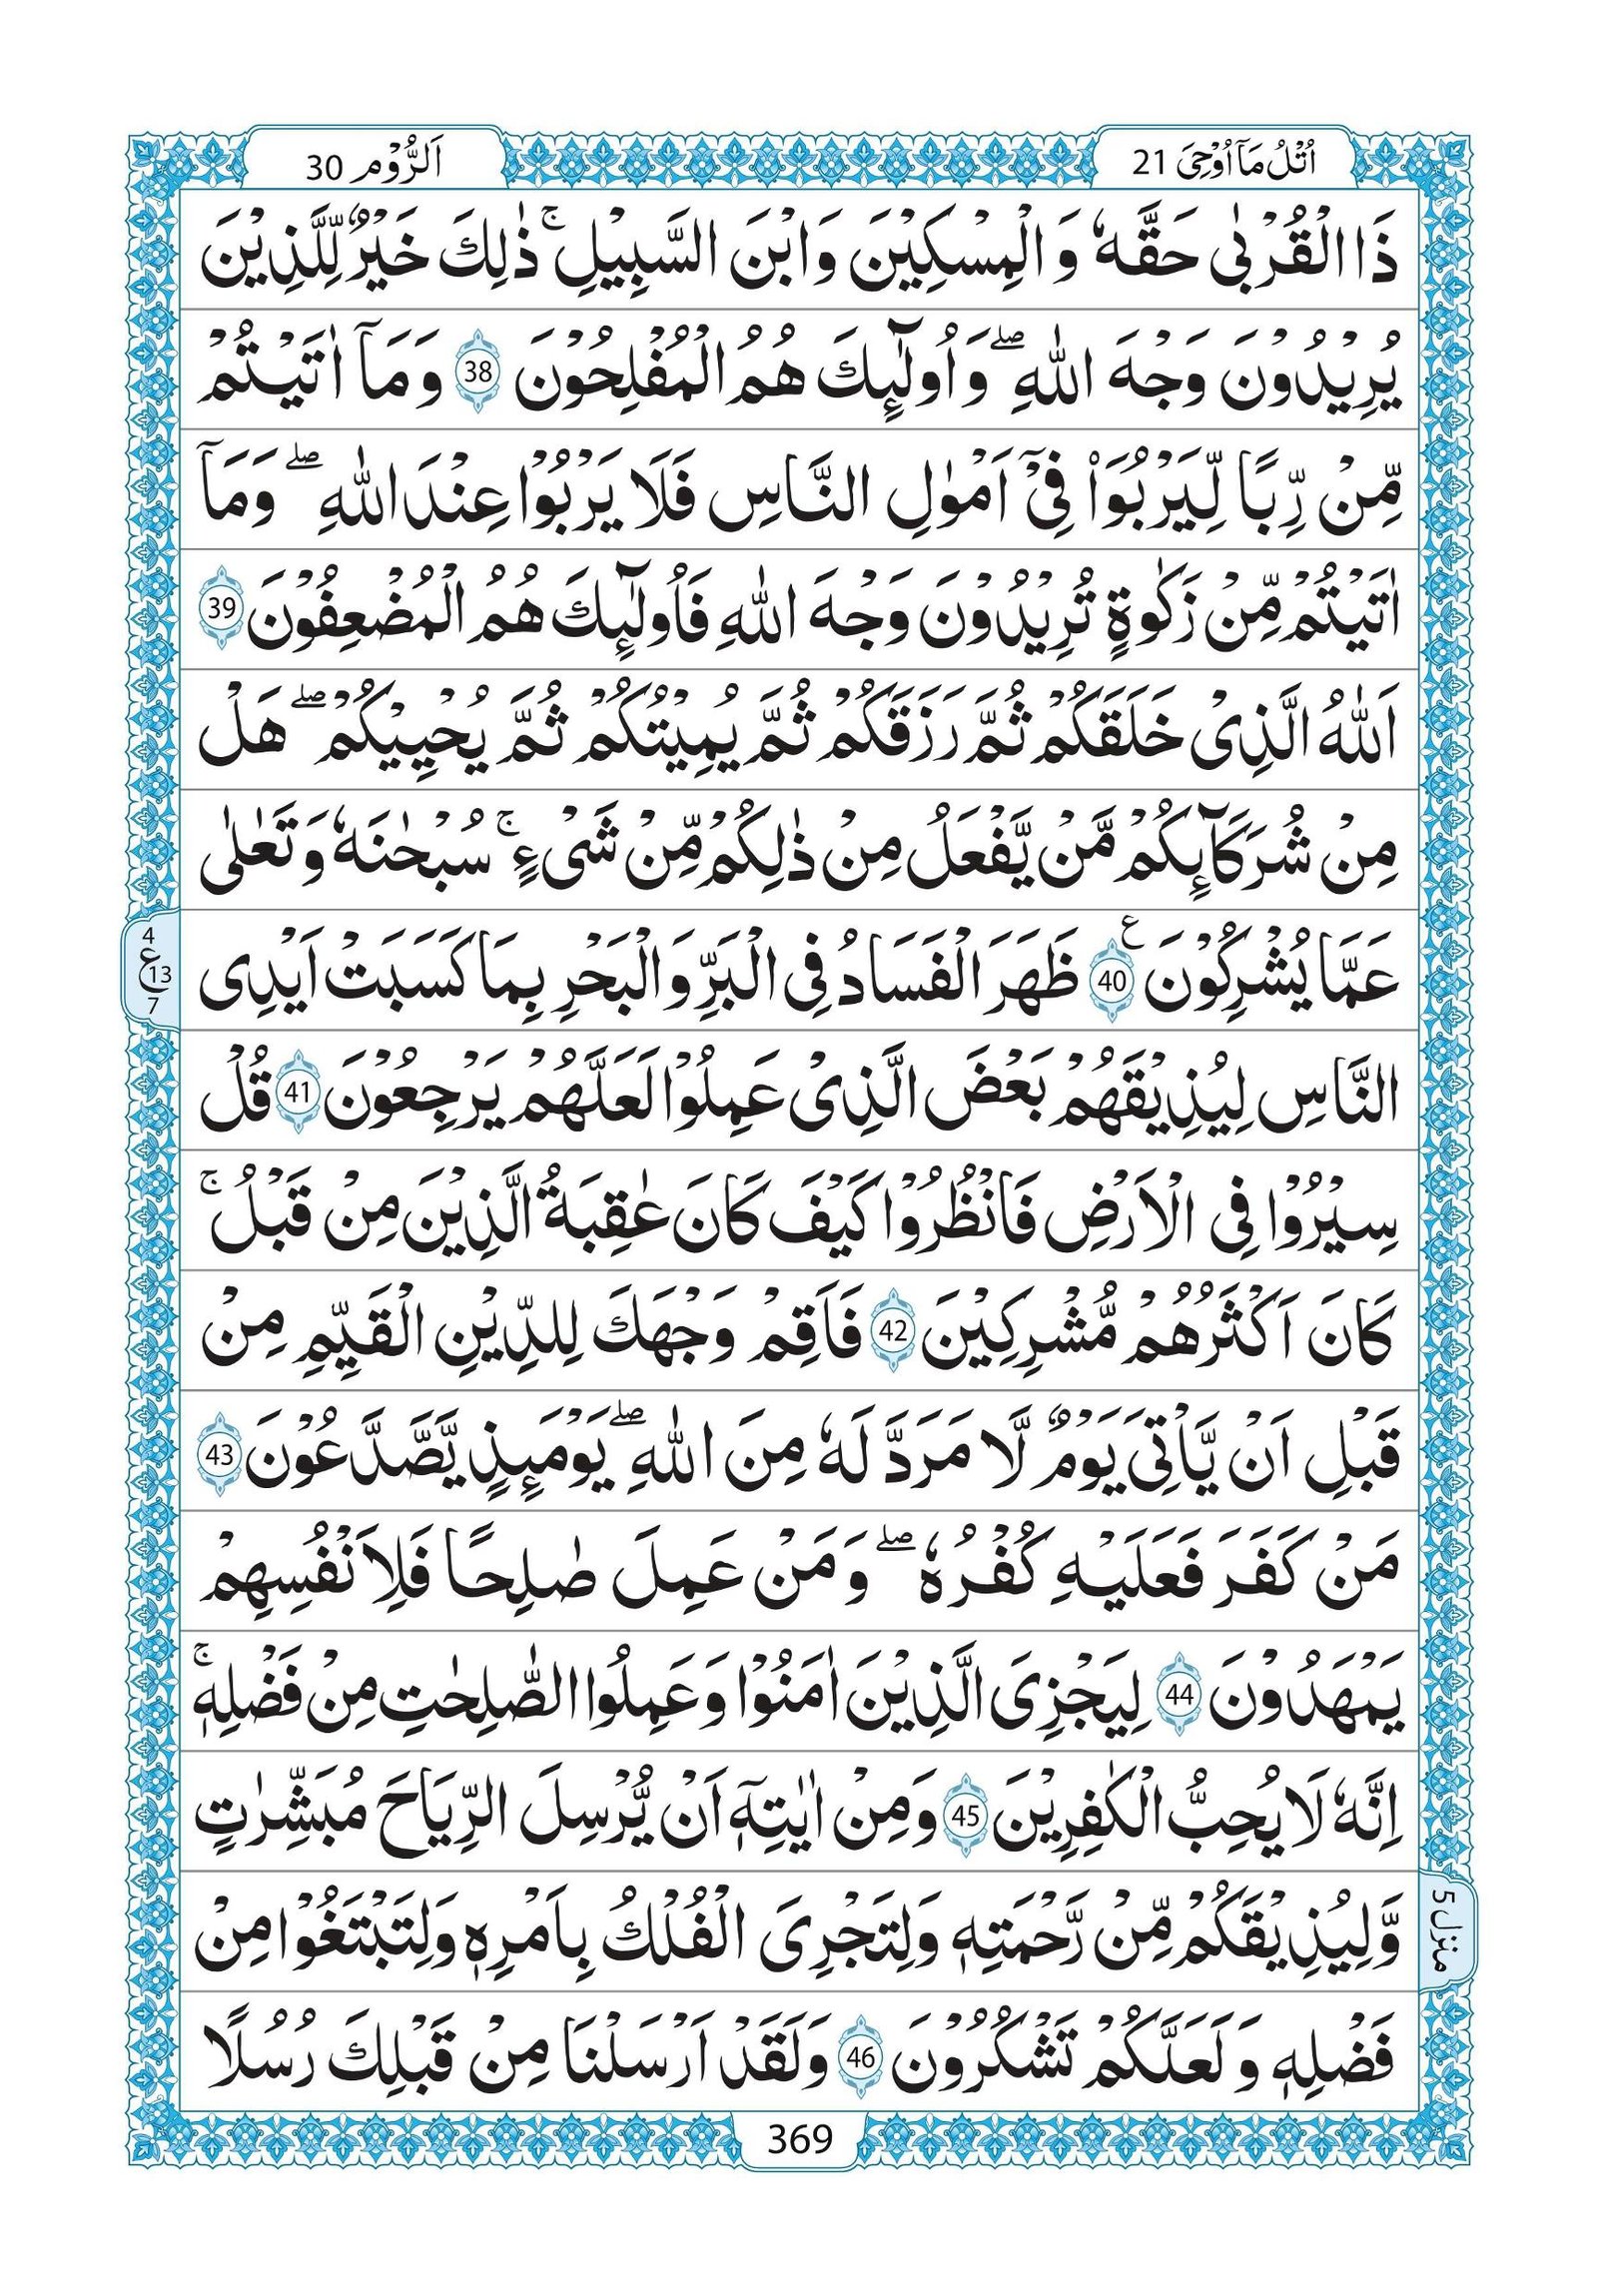 اُتْلُ مَآ اُوْحِیَ 21
اَلرُّوْم 30
ذَا الْقُرْبٰى حَقَّهٗ وَ الْمِسْكِيْنَ وَابْنَ السَّبِيْلِ ۚ ذٰلِكَ خَيْرٌ لِّلَّذِيْنَ
يُرِيْدُوْنَ وَجْهَ اللّٰهِ ۖ وَاُولٰٓئِكَ هُمُ الْمُفْلِحُوْنَ 38 وَ مَآ اٰتَيْتُمْ
مِّنْ رِّبًا لِّيَرْبُوَا۟ فِىْٓ اَمْوٰلِ النَّاسِ فَلَا يَرْبُوْا عِنْدَ اللّٰهِ ۖ وَمَآ
اٰتَيْتُمْ مِّنْ زَكٰوةٍ تُرِيْدُوْنَ وَجْهَ اللّٰهِ فَاُولٰٓئِكَ هُمُ الْمُضْعِفُوْنَ 39
اَللّٰهُ الَّذِىْ خَلَقَكُمْ ثُمَّ رَزَقَكُمْ ثُمَّ يُمِيْتُكُمْ ثُمَّ يُحْيِيْكُمْ ۖ هَلْ
مِنْ شُرَكَآئِكُمْ مَّنْ يَّفْعَلُ مِنْ ذٰلِكُمْ مِّنْ شَىْءٍ ۚ سُبْحٰنَهٗ وَ تَعٰلٰى
عَمَّا يُشْرِكُوْنَ 40 ع ظَهَرَ الْفَسَادُ فِى الْبَرِّ وَالْبَحْرِ بِمَا كَسَبَتْ اَيْدِى
4
ع 13
7
النَّاسِ لِيُذِيْقَهُمْ بَعْضَ الَّذِىْ عَمِلُوْا لَعَلَّهُمْ يَرْجِعُوْنَ 41 قُلْ
سِيْرُوْا فِى الْاَرْضِ فَانْظُرُوْا كَيْفَ كَانَ عٰقِبَةُ الَّذِيْنَ مِنْ قَبْلُ ۚ
كَانَ اَكْثَرُهُمْ مُّشْرِكِيْنَ 42 فَاَقِمْ وَجْهَكَ لِلدِّيْنِ الْقَيِّمِ مِنْ
قَبْلِ اَنْ يَّاْتِىَ يَوْمٌ لَّا مَرَدَّ لَهٗ مِنَ اللّٰهِ ۖ يَوْمَئِذٍ يَّصَّدَّعُوْنَ 43
مَنْ كَفَرَ فَعَلَيْهِ كُفْرُهٗ ۖ وَ مَنْ عَمِلَ صٰلِحًا فَلِاَنْفُسِهِمْ
يَمْهَدُوْنَ 44 لِيَجْزِىَ الَّذِيْنَ اٰمَنُوْا وَ عَمِلُوا الصّٰلِحٰتِ مِنْ فَضْلِهٖ ۚ
اِنَّهٗ لَا يُحِبُّ الْكٰفِرِيْنَ 45 وَمِنْ اٰيٰتِهٖٓ اَنْ يُّرْسِلَ الرِّيَاحَ مُبَشِّرٰتٍ
وَّلِيُذِيْقَكُمْ مِّنْ رَّحْمَتِهٖ وَلِتَجْرِىَ الْفُلْكُ بِاَمْرِهٖ وَلِتَبْتَغُوْا مِنْ
منزل 5
فَضْلِهٖ وَ لَعَلَّكُمْ تَشْكُرُوْنَ 46 وَلَقَدْ اَرْسَلْنَا مِنْ قَبْلِكَ رُسُلًا
369